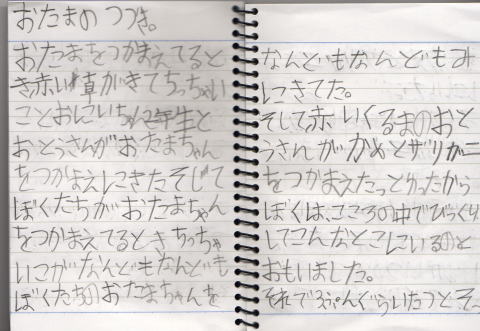 おたまの つづき。
おたまをつかまえてると
き赤い車がきてちっちゃい
ことおにいちゃん2年生と
おとうさんがおたまちゃん
をつかまえにきたそして
ぼくたちがおたまちゃん
をつかまえてるときちっちゃ
いこがなんどもなんども
ぼくたちのおたまちゃんを
なんどもなんどもみ
にきてた。
そして赤いくるまのおと
うさんがかめとザリガニ
をつかまえたっとゆったから
ぼくは、こころの中でびっくり
してこんなとこにいるのと
おもいました。
それで3ぷんぐらいたつとそ～